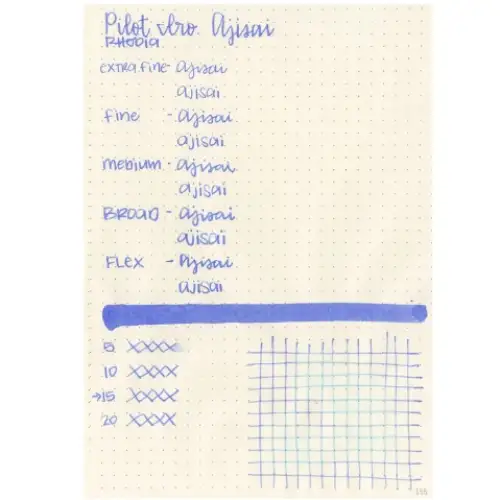 Pilot iro. Ajisai
RHODIA
EXTRA FINE - Ajisai
ajisai
fine - Ajisai
ajisai
medium - Ajisai
ajisai
BROAD - Ajisai
ajisai
FLEX - Ajisai
ajisai
5 XXXX
10 XXXX
→15 XXXX
20 XXXX